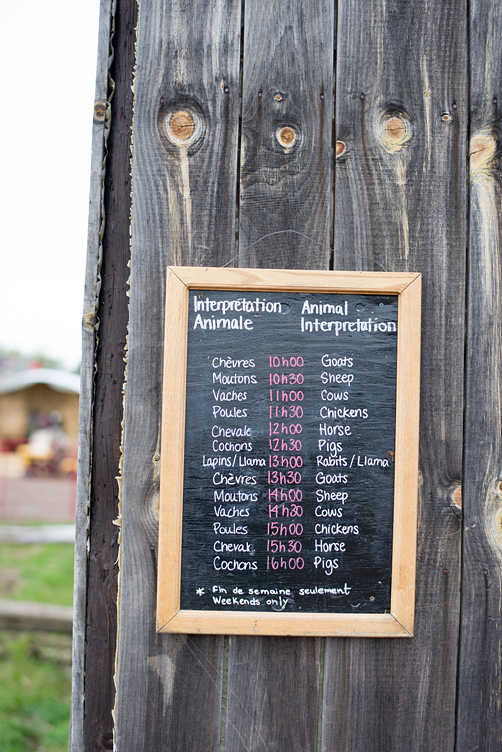 Interpretation Animal
Animale Interpretation
Chèvres 10h00 Goats
Moutons 10h30 Sheep
Vaches 11h00 Cows
Poules 11h30 Chickens
Chevale 12h00 Horse
Cochons 12h30 Pigs
Lapins/Llama 13h00 Rabits/Llama
Chèvres 13h30 Goats
Moutons 14h00 Sheep
Vaches 14h30 Cows
Poules 15h00 Chickens
Cheval 15h30 Horse
Cochons 16h00 Pigs
* Fin de semaine seulement
Weekends only